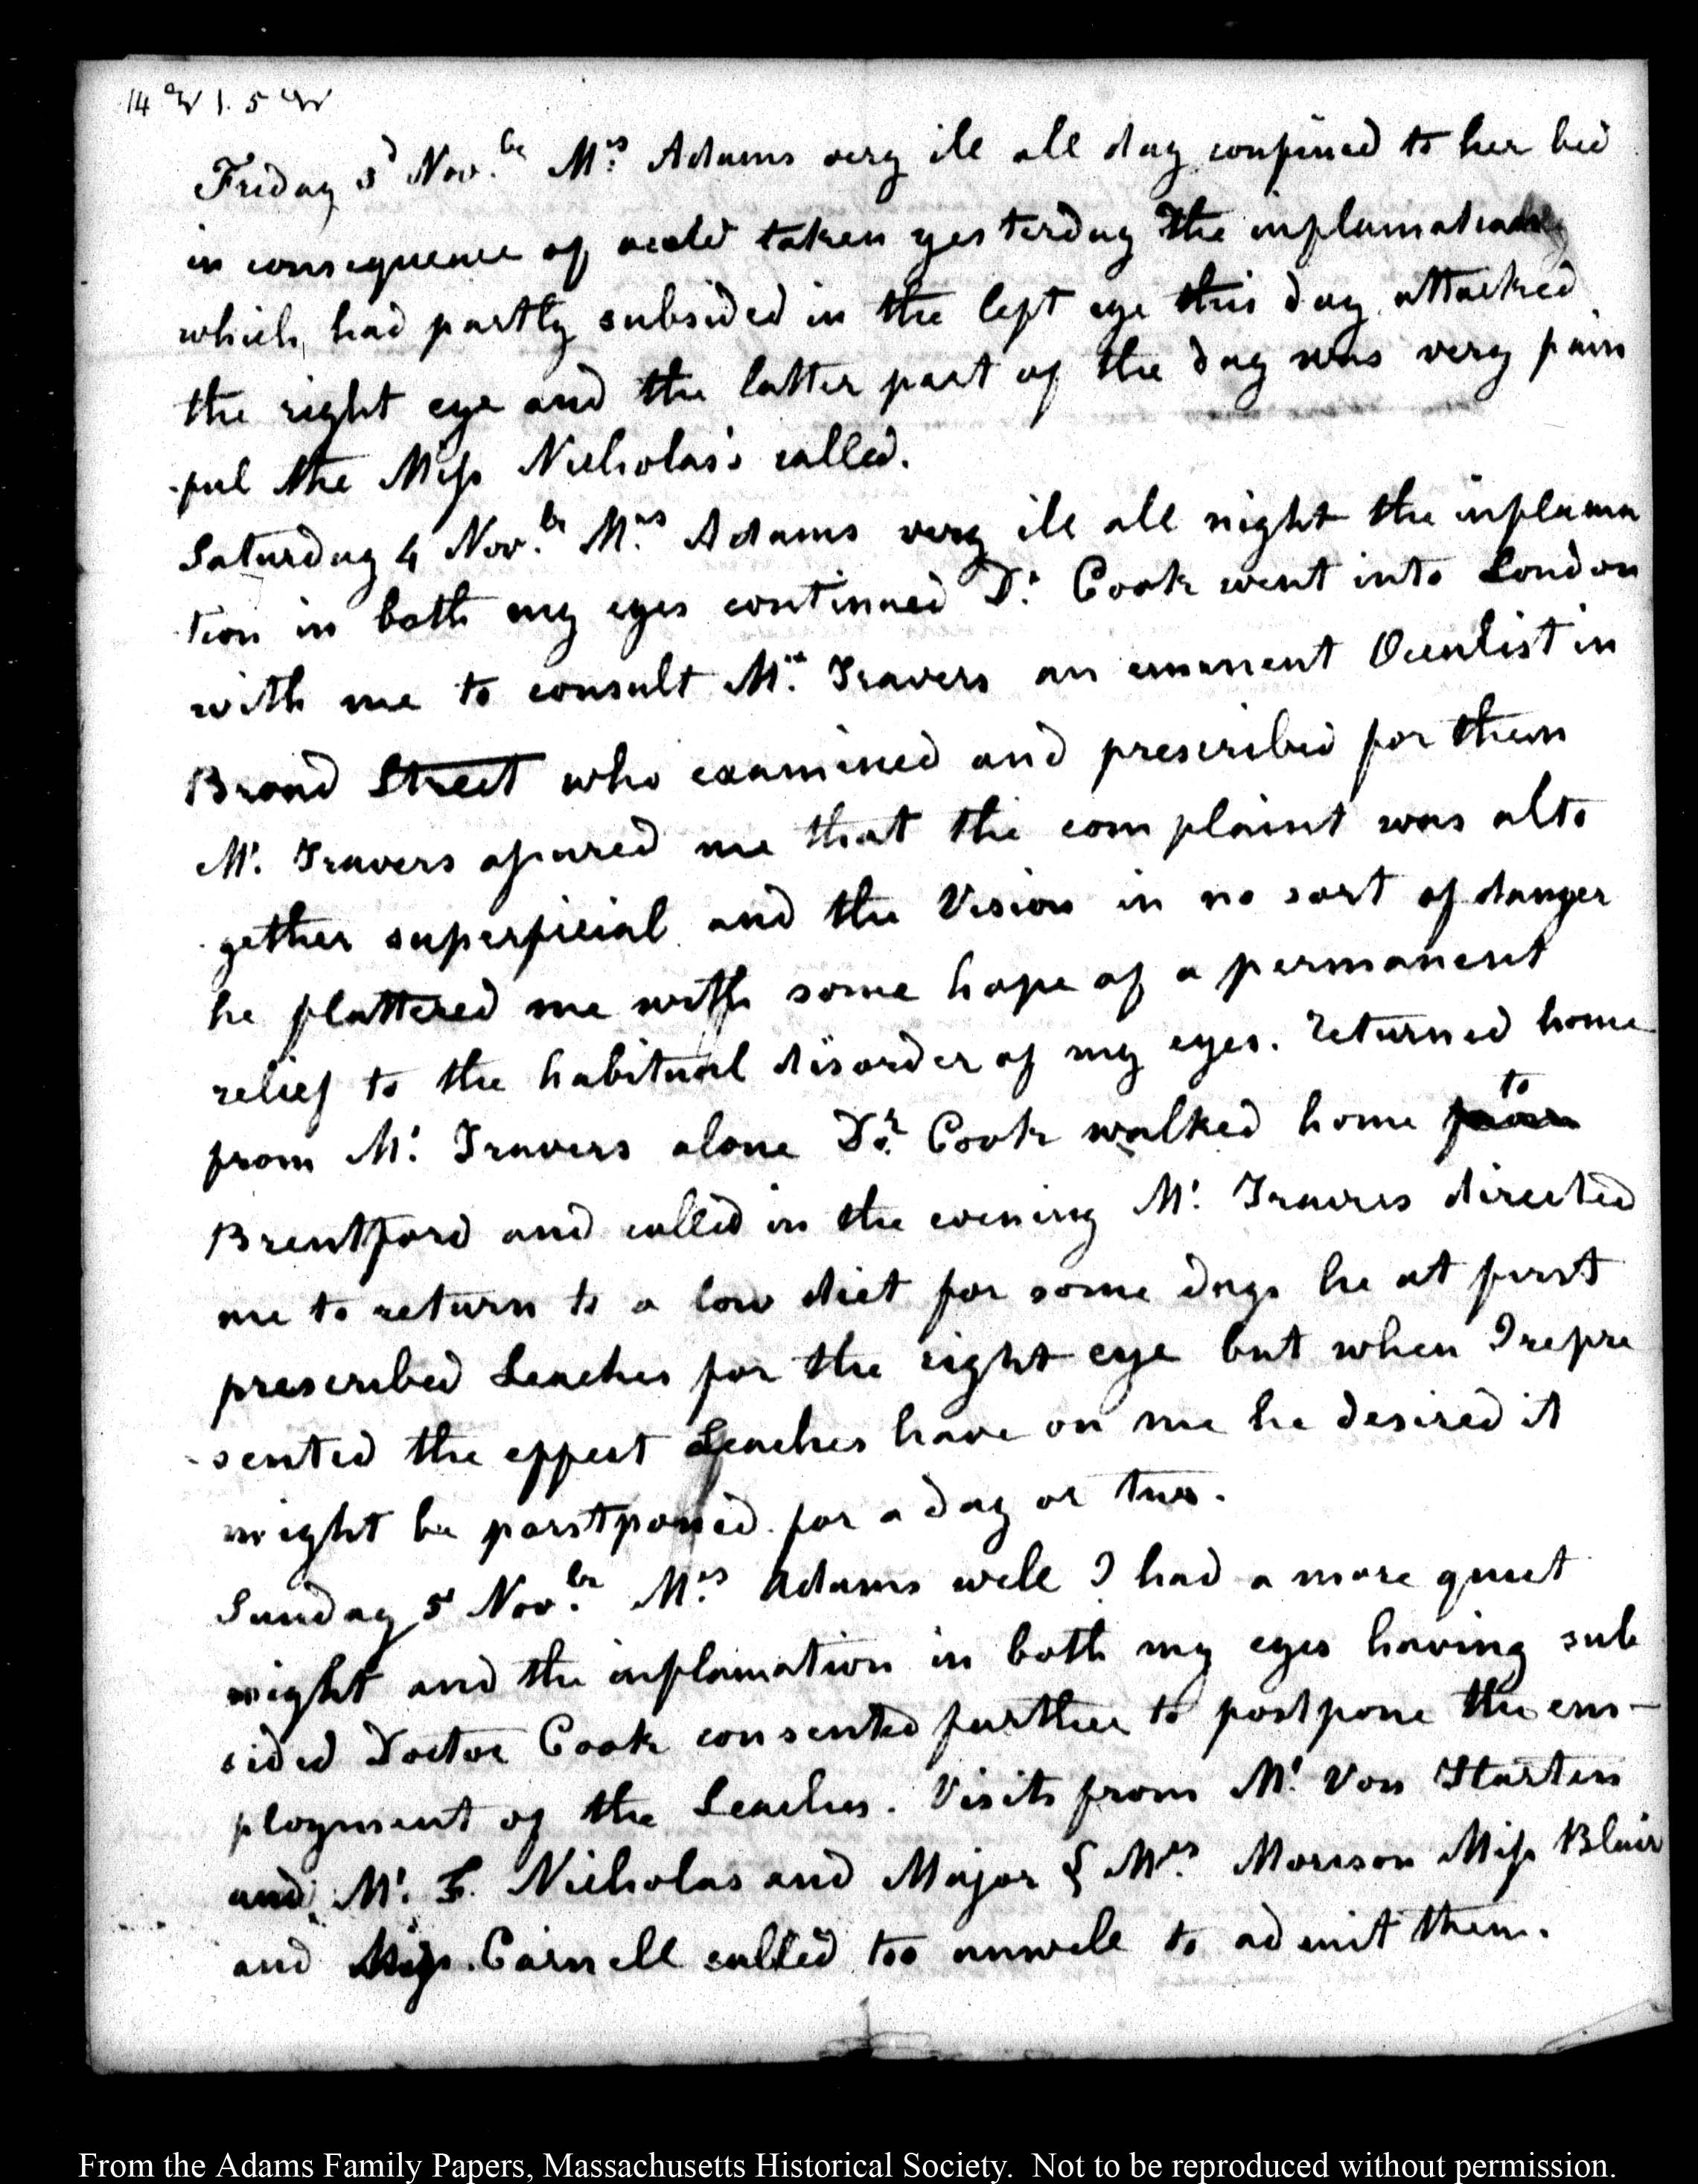 Friday 3d Nov.br Mrs Adams very ill all day confined to her bed
in consequence of a cold taken yesterday The inflamation
which had partly subsided in the left eye this day attacked
the right eye and the latter part of the day was very pain
ful the Miss Nicholas's called.
Saturday 4 Nov.br Mrs Adams very ill all night the inflama
tion in both my eyes continued Dr. Cook went into London
with me to consult Mr. Travers an eminent Oculist in
Broad Street who examined and prescribed for them
Mr. Travers assured me that the complaint was alto
gether superficial and the Vision in no sort of danger
he flattered me with some hope of a permanent
relief to the habitual disorder of my eyes. returned home
from Mr. Travers alone Dr. Cook walked home from to
Brentford and called in the evening Mr. Travers directed
me to return to a low diet for some days he at first
prescribed Leaches for the right eye but when I repre
sented the effect Leaches have on me he desired it
might be postponed for a day or two.
Sunday 5 Nov.br Mrs Adams well I had a more quiet
night and the inflamation in both my eyes having sub
sided Doctor Cook consented further to postpone the em-
ployment of the Leaches. Visits from Mr. Von Harten
and Mr. F. Nicholas and Major & Mrs Morison Miss Blair
and Miss Carnell called too unwell to admit them.
From the Adams Family Papers, Massachusetts Historical Society. Not to be reproduced without permission.